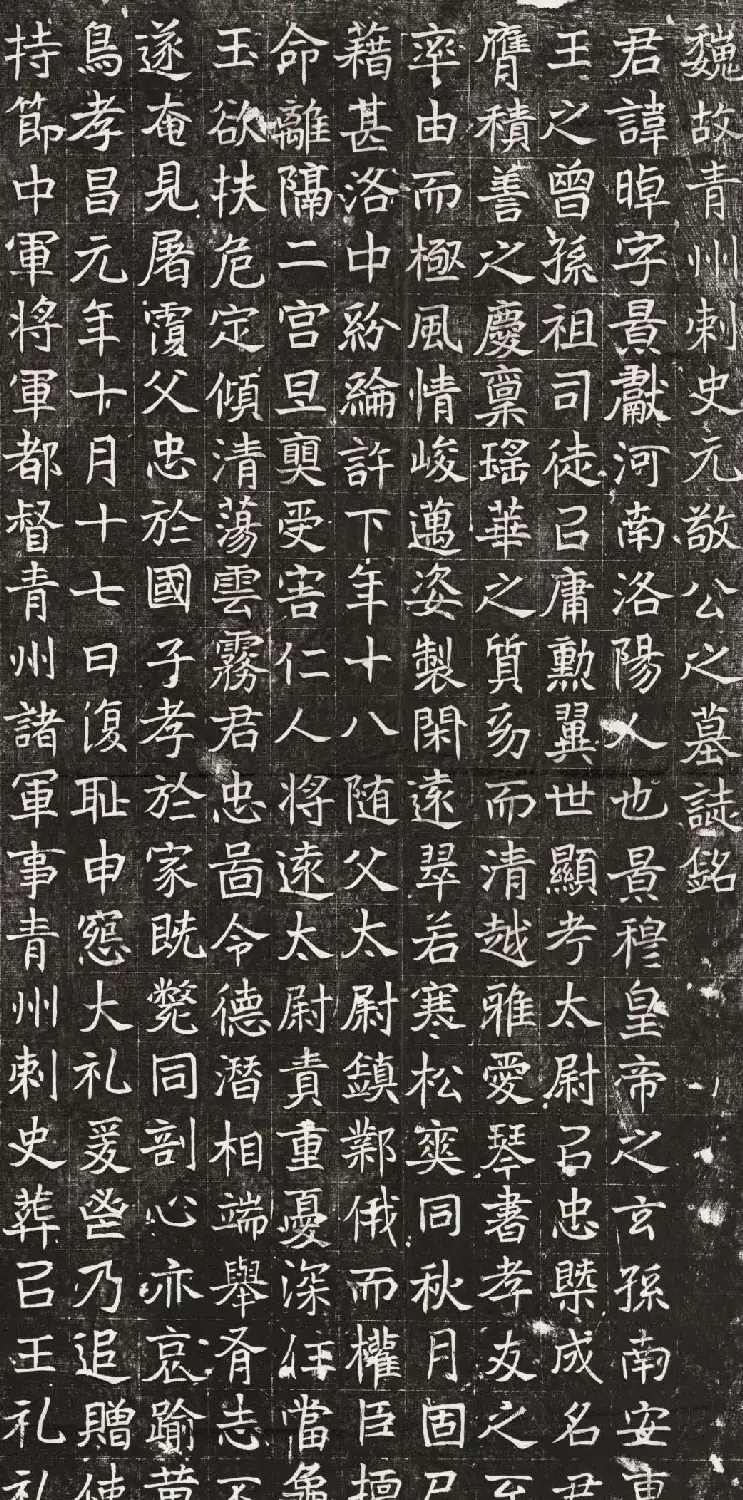 魏故青州刺史元敬公之墓誌銘
君諱晫字景獻河南洛陽人也景穆皇帝之玄孫南安惠
王之曾孫祖司徒㠯庸勳翼世顯考太尉㠯忠槩成名君
膺積善之慶稟瑤華之質㓜而清越雅愛琴書孝友之至
率由而極風情峻邁姿製閑遠翠若寒松奭同秋月固已
藉甚洛中紛綸許下年十八随父太尉鎮鄴俄而權臣擅
命離隔二宮旦奭受害仁人將遠太尉責重憂深任當龜
玉欲扶危定傾清蕩雲霧君忠啚令德潛相端舉有志不
遂奄見屠覆父忠於國子孝於家既斃同剖心亦哀踰黃
鳥孝昌元年十月十七日復耻申𡨚大礼爰啓乃追贈使
持節中軍將軍都督青州諸軍事青州刺史葬㠯王礼礼